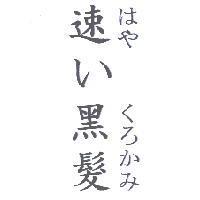 速い黒髪
はや くろかみ